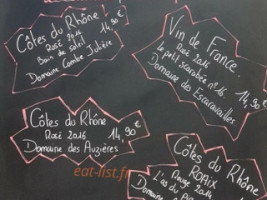 Côtes du Rhône !
Rosé 2016 14,90€
Bain de soleil
Domaine Combe Julière
Vin de France
Rosé 2016
le petit scarabée n°16
Domaine des Escaravailles
Côtes du Rhône
Rosé 2016 14,90€
Domaine des Auzières
Côtes du Rhône
ROAIX
Rouge 2014
L'as du
Domaine
eat-list.fr